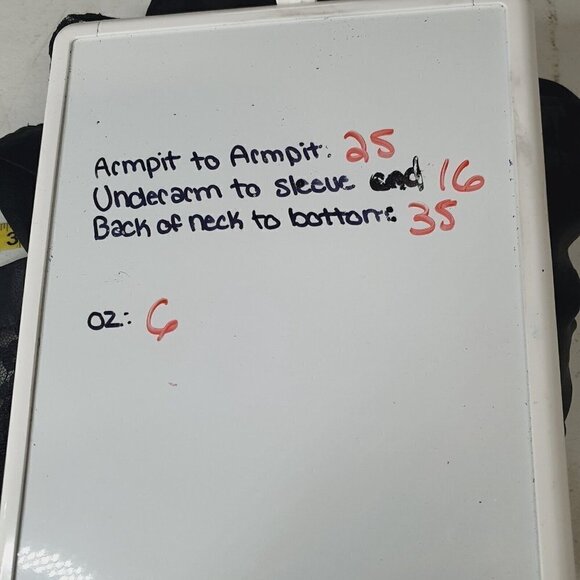 Armpit to Armpit: 25
Underarm to sleeve end 16
Back of neck to bottom: 35
oz.: 6
3